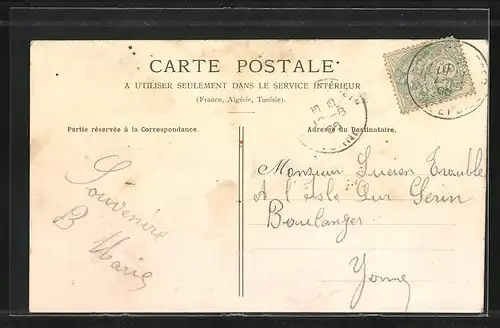 CARTE POSTALE
A UTILISER SEULEMENT DANS LE SERVICE INTÉRIEUR
(France, Algérie, Tunisie).
Partie réservée à la Correspondance.
Adresse du Destinataire.
Souvenire
B Marie
Monsieur Lucien
A l'Isle Sur Serin
Boulanger
Yonne